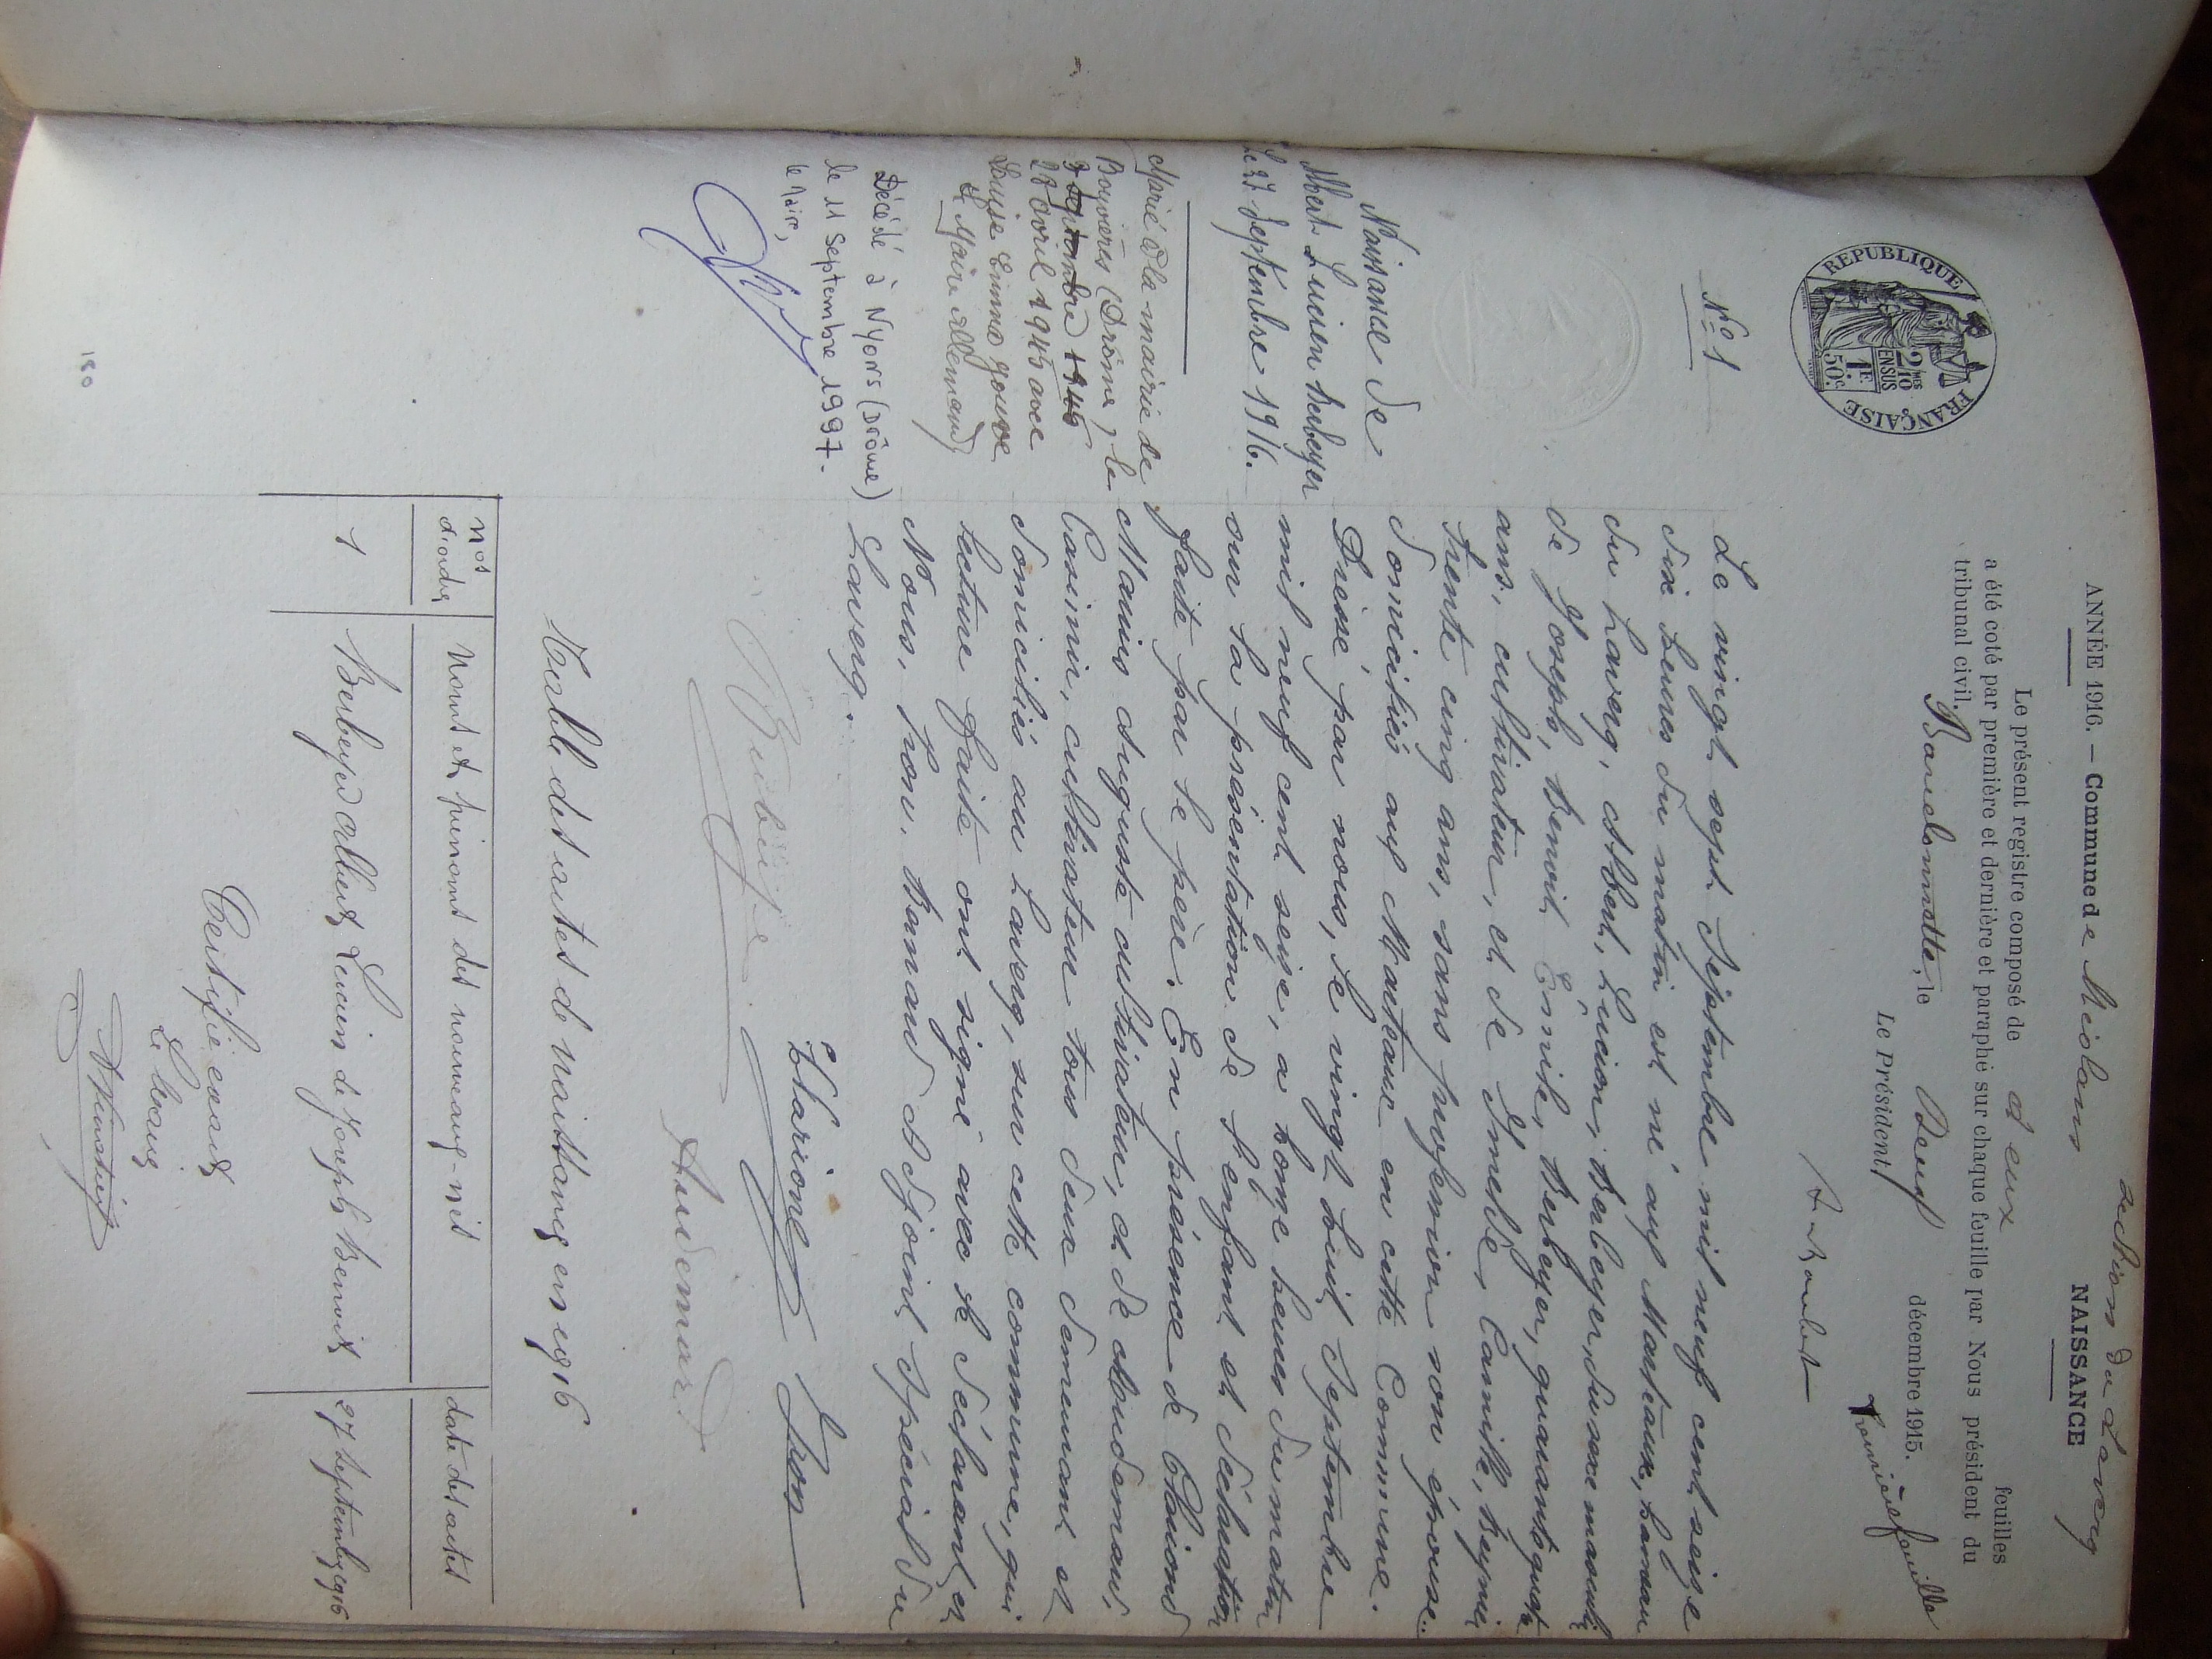 section du Laverq
ANNÉE 1916. — Commune de Méolans NAISSANCE
Le présent registre composé de deux feuilles
a été coté par première et dernière et paraphé sur chaque feuille par Nous président du
tribunal civil.
Barcelonnette, le neuf décembre 1915.
Le Président,
Première feuille
REPUBLIQUE FRANÇAISE
2/10 MES
EN SUS
1F
50c.
N° 1
Naissance de
Albert Lucien Berbeyer
Le 27 Septembre 1916.
Marié à la mairie de
Bouvières (Drôme), le
3 septembre 1945
28 avril 1945 avec
Louise Emma
Le Maire
Décédé à Nyons (Drôme)
le 11 Septembre 1997.
le Maire,
Le vingt sept Septembre mil neuf cent seize
dix heures du matin est né aux Marteaux, hameau
du Laverq, Albert, Lucien, Berbeyer, du sexe masculin
de Joseph, Benoit Emile, Berbeyer, quarante quatre
ans, cultivateur, et de Camille,
trente cinq ans, sans profession son épouse.
domiciliés aux Marteaux en cette Commune.
Dressé par nous, le vingt huit Septembre
mil neuf cent seize, à onze heures du matin
sur la présentation de l'enfant et déclaration
faite par le père. En présence de
Auguste cultivateur, et de
Casimir, cultivateur tous deux demeurant et
domiciliés au Laverq, sur cette commune, qui
lecture faite ont signé avec le déclarant et
Nous, Adjoint Spécial du
Laverq.
Table des actes de naissance en 1916
nos d'ordre
Noms et prénoms des nouveaux-nés
date des actes
1
Berbeyer Albert Lucien de Joseph Benoit
27 Septembre 1916
Certifié exact
Le Maire
180